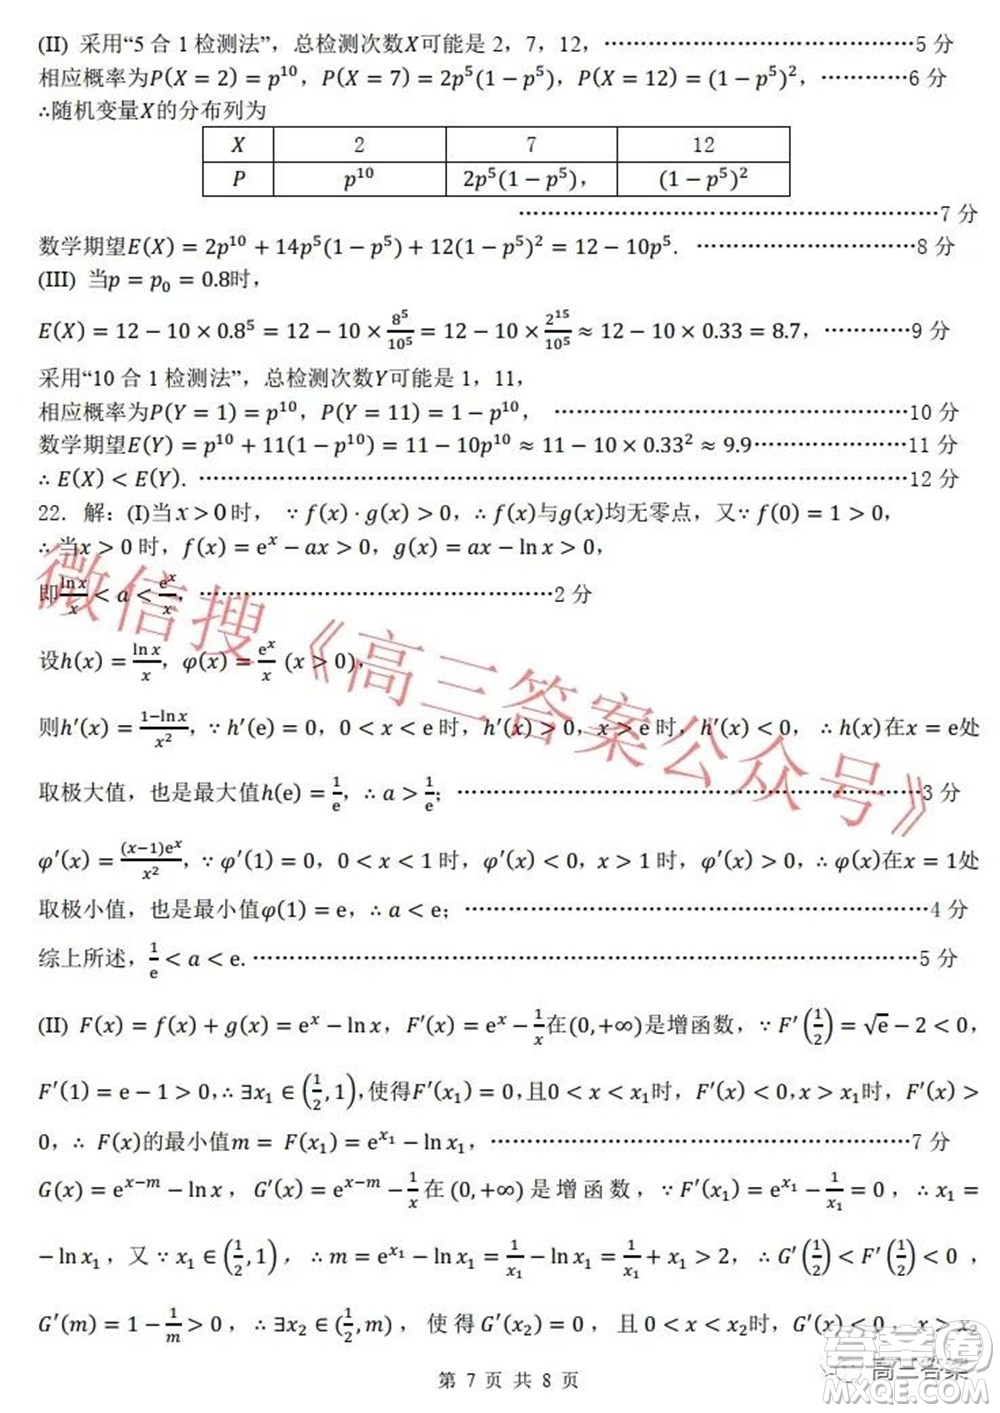 (II) 采用“5 合 1 检测法”，总检测次数X可能是 2，7，12，……………………………………5 分
相应概率为P(X = 2) = p¹⁰，P(X = 7) = 2p⁵(1 − p⁵)，P(X = 12) = (1 − p⁵)²，…………6 分
∴随机变量X的分布列为
X 2 7 12
P p¹⁰ 2p⁵(1 − p⁵)， (1 − p⁵)²
……………………………………………………7 分
数学期望E(X) = 2p¹⁰ + 14p⁵(1 − p⁵) + 12(1 − p⁵)² = 12 − 10p⁵. …………………………8 分
(III) 当p = p₀ = 0.8时，
E(X) = 12 − 10 × 0.8⁵ = 12 − 10 × 8⁵/10⁵ = 12 − 10 × 2¹⁵/10⁵ ≈ 12 − 10 × 0.33 = 8.7，…………9 分
采用“10 合 1 检测法”，总检测次数Y可能是 1，11，
相应概率为P(Y = 1) = p¹⁰，P(Y = 11) = 1 − p¹⁰， ……………………………………………10 分
数学期望E(Y) = p¹⁰ + 11(1 − p¹⁰) = 11 − 10p¹⁰ ≈ 11 − 10 × 0.33² ≈ 9.9…………………11 分
∴ E(X) < E(Y). …………………………………………………………………………………12 分
22．解：(I)当x > 0 时， ∵ f(x) · g(x) > 0，∴ f(x)与g(x)均无零点，又∵ f(0) = 1 > 0，
∴ 当x > 0 时，f(x) = eˣ − ax > 0，g(x) = ax − ln x > 0，
即 ln x/x < a < eˣ/x，……………………………………………2 分
设h(x) = ln x/x，φ(x) = eˣ/x (x > 0)，
则h′(x) = (1−ln x)/x²，∵ h′(e) = 0，0 < x < e 时，h′(x) > 0，x > e 时，h′(x) < 0， ∴ h(x)在x = e处
取极大值，也是最大值h(e) = 1/e，∴ a > 1/e；…………………………………………………………3 分
φ′(x) = (x−1)eˣ/x²，∵ φ′(1) = 0，0 < x < 1 时，φ′(x) < 0，x > 1 时，φ′(x) > 0，∴ φ(x)在x = 1处
取极小值，也是最小值φ(1) = e，∴ a < e；…………………………………………………………4 分
综上所述，1/e < a < e.………………………………………………………………………………5 分
(II) F(x) = f(x) + g(x) = eˣ − ln x，F′(x) = eˣ − 1/x 在(0, +∞)是增函数，∵ F′(1/2) = √e − 2 < 0，
F′(1) = e − 1 > 0，∴ ∃x₁ ∈ (1/2, 1)，使得F′(x₁) = 0，且0 < x < x₁时，F′(x) < 0，x > x₁时，F′(x) >
0，∴ F(x)的最小值m = F(x₁) = eˣ¹ − ln x₁，……………………………………………………7 分
G(x) = eˣ⁻ᵐ − ln x，G′(x) = eˣ⁻ᵐ − 1/x 在 (0, +∞) 是 增 函 数，∵ F′(x₁) = eˣ¹ − 1/x₁ = 0，∴ x₁ =
−ln x₁，又 ∵ x₁ ∈ (1/2, 1)，∴ m = eˣ¹ − ln x₁ = 1/x₁ − ln x₁ = 1/x₁ + x₁ > 2，∴ G′(1/2) < F′(1/2) < 0 ，
G′(m) = 1 − 1/m > 0 ，∴ ∃x₂ ∈ (1/2, m) ，使 得 G′(x₂) = 0 ，且 0 < x < x₂ 时，G′(x) < 0，x > x₂
第 7 页 共 8 页
微信搜《高三答案公众号》
高三答案
答案圈
MXQE.COM